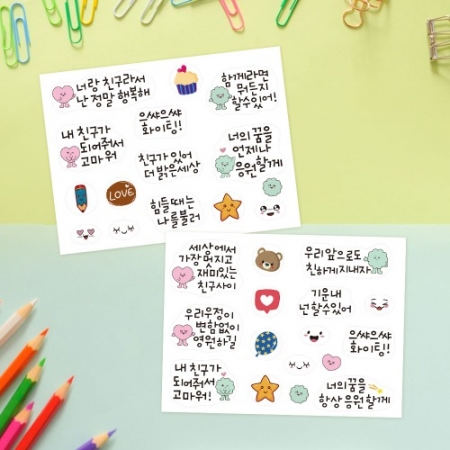 너랑 친구라서
난 정말 행복해
함께라면
뭐든지
할수있어!
으쌰으쌰
화이팅!
내 친구가
되어줘서
고마워
너의 꿈을
언제나
응원할게
친구가 있어
더 밝은세상
LOVE
힘들때는
나를불러
세상에서
가장 멋지고
재미있는
친구사이
우리 앞으로도
친하게지내자
기운내
넌할수있어
우리우정이
변함없이
영원하길
으쌰으쌰
화이팅!
내 친구가
되어줘서
고마워!
너의 꿈을
항상 응원할게